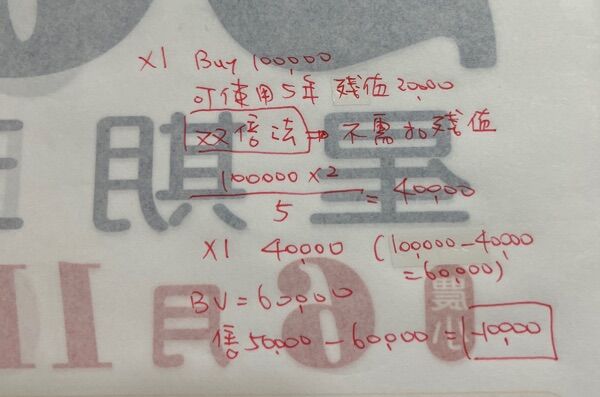 X1 Buy 100,000
可使用5年 殘值 20,000
双倍法 ⇒ 不需扣殘值
100000 x 2 / 5 = 40,000
X1 40,000 (100,000 - 40,000
= 60,000)
BV = 60,000
售 50,000 - 60,000 = -10,000
星期
6月11
農